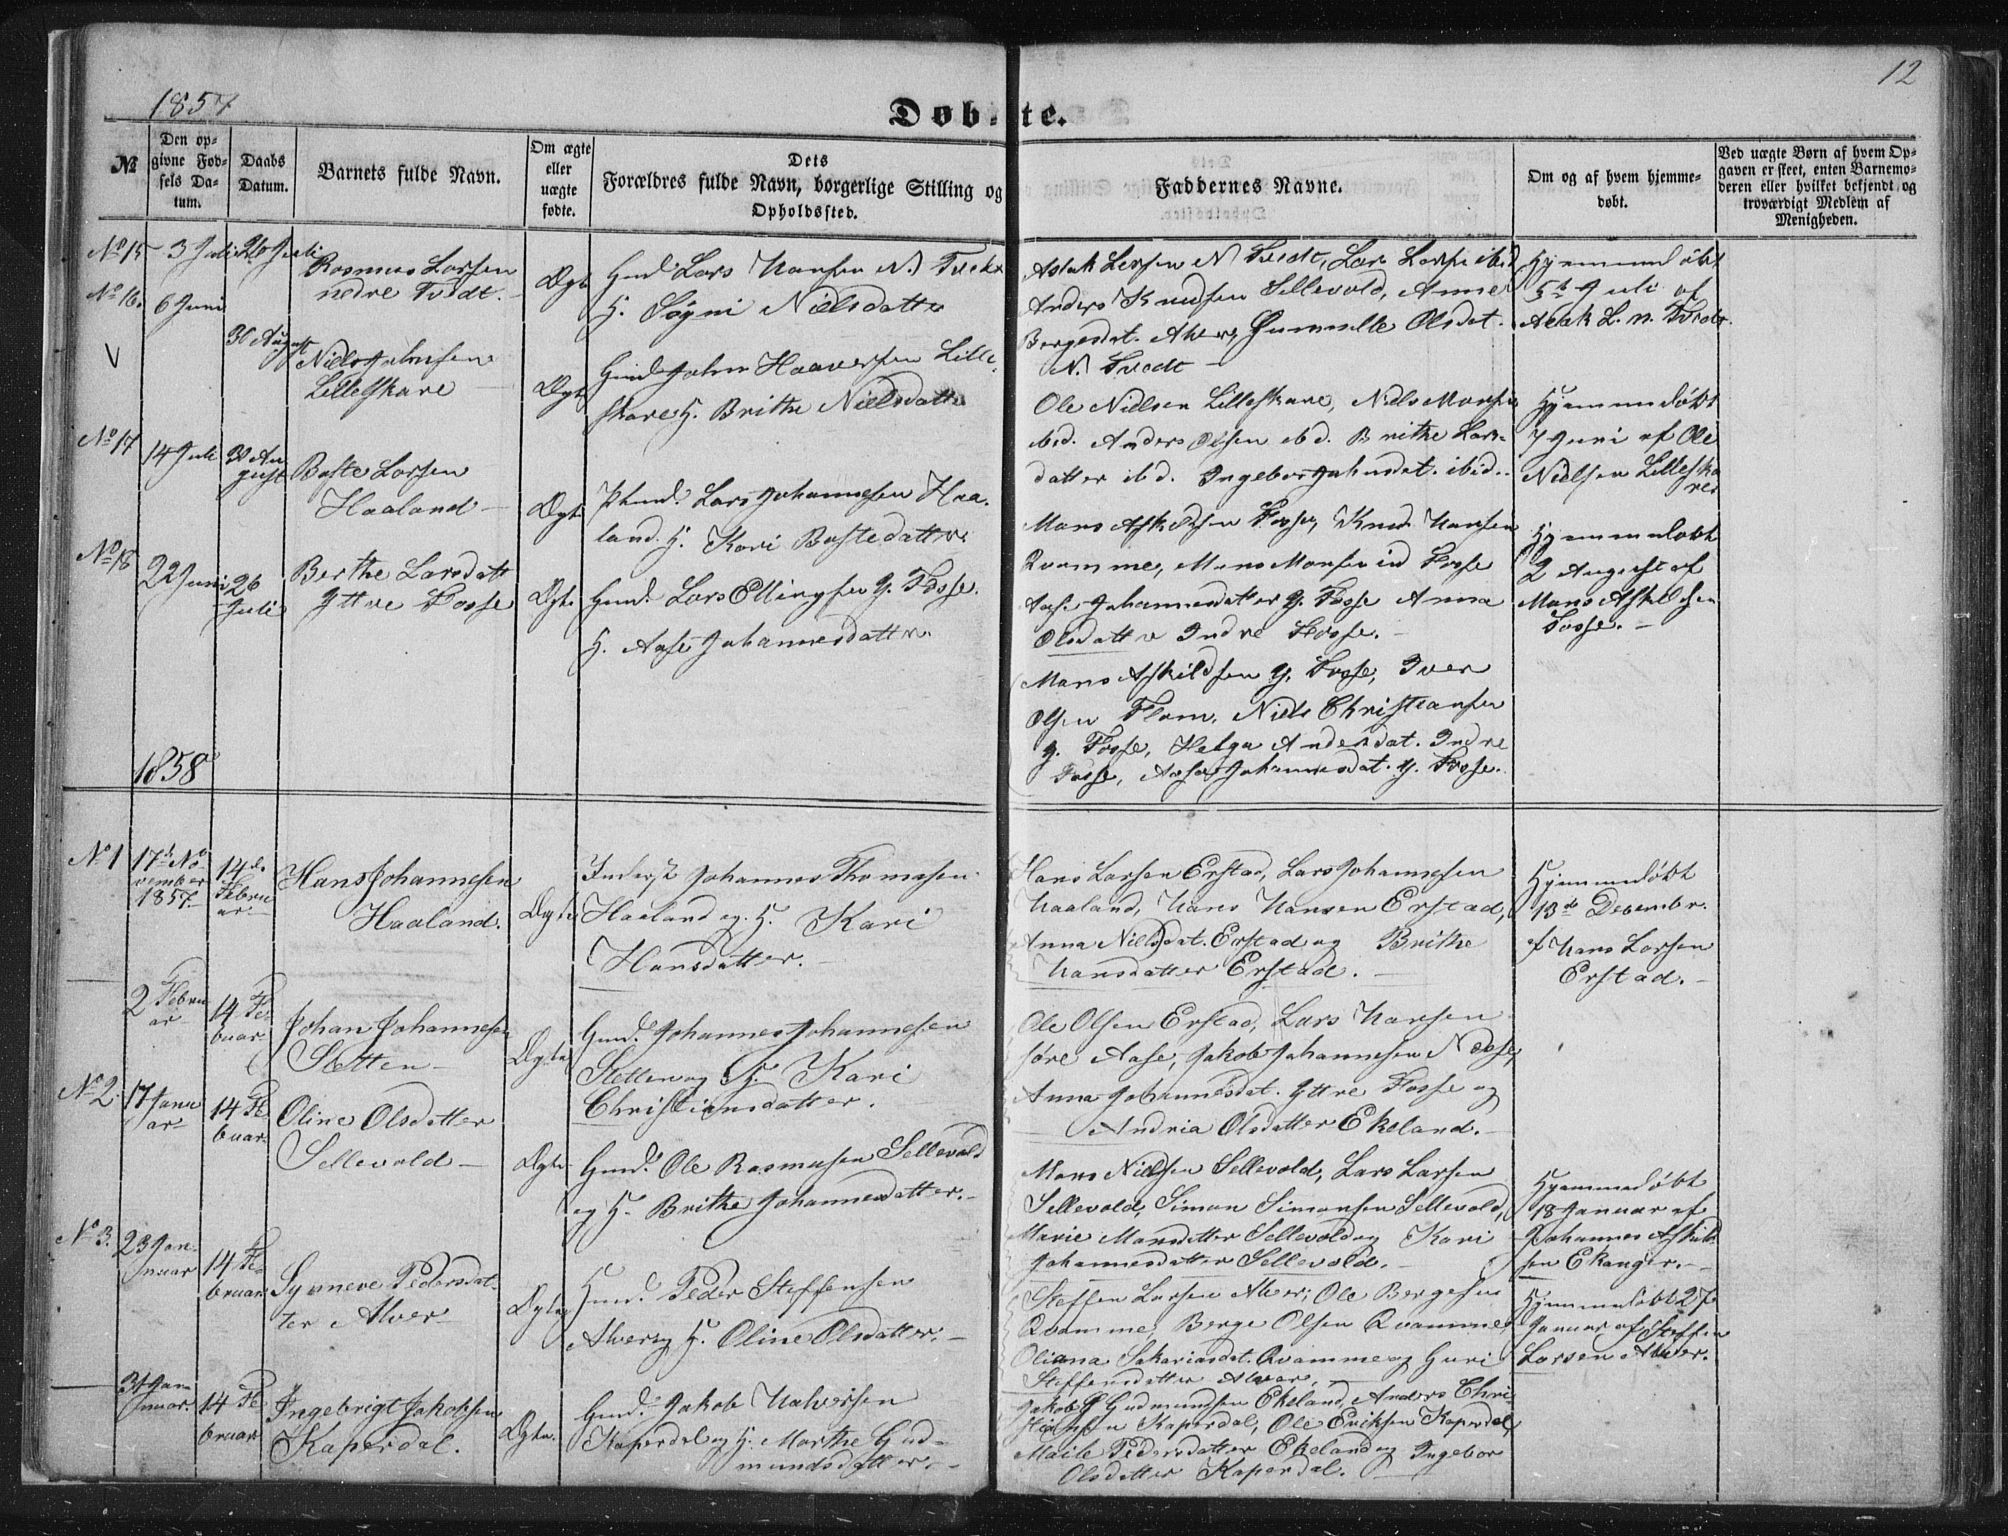 12
1857
Døbte.
№
Den opgivne Fødsels Datum.
Daabs Datum.
Barnets fulde Navn.
Om ægte eller uægte fødte.
Dets Forældres fulde Navn, borgerlige Stilling og Opholdssted.
Faddernes Navne.
Om og af hvem hjemmedøbt.
Ved uægte Børn af hvem Opgaven er skeet, enten Barnemoderen eller hvilket bekjendt og troværdigt Medlem af Menigheden.
No 15
3 Juli
26 Juli
Rasmus Larsen
nedre Tvedt.
Ægt
Gmd. Lars Hansen N. Tvedt
H. Søgni Nielsdatter
Aslak Larsen N Tvedt, Lars Larsen ibid
Anders Knudsen Sellevold, Anne
Bergesdat. Alver, Olsdat.
N. Tvedt
Hjemmedøbt
5t Juli af
Aslak L. n. Tvedt.
No 16.
6 Juni
30 August
Niels Johnsen
Lilleskare
Ægt
Gmd John Haaversen Lille
skare H. Brithe Nielsdatter
Ole Nielsen Lilleskare, Niels Monsen
ibid. Anders Olsen ibd. Brithe Lars-
datter ibd. Ingebor Johnsdat. ibid.
Hjemmedøbt
7 Juni af Ole
Nielsen Lilleska
re
V
No 17
14 Juli
30 Au
gust
Baste Larsen
Haaland
Ægt
Lars Johannesen Haa-
land. H. Kari Bastedatter
Mons Askildsen Fosse, Knud Hansen
Qvamme, Mons Monsen ind Fosse
Aase Johannesdatter y. Fosse Anna
Olsdatter Indre Fosse.
Hjemmedøbt
2 August af
Mons Askildsen
Fosse.
No 18
22 Juni
26
Juli
Berthe Larsdatt
Yttre Fosse
Ægt.
Gmd. Lars Ellingsen y. Fosse.
H. Aase Johannesdatter
Mons Askildsen y. Fosse, Iver
Olsen Flom, Niels Christiansen
y. Fosse, Helga Andersdat. Indre
Fosse, Aase Johannesdat. y. Fosse.
1858
No 1
17de No
vember
1857
14de
Febru
ar
Hans Johannesen
Haaland.
Ægte
Inderst Johannes Thomasen
Haaland og H. Kari
Hansdatter.
Hans Larsen Erstad, Lars Johannesen
Haaland, Hans Hansen Erstad,
Anna Nielsdat. Erstad og Brithe
Hansdatter Erstad.
Hjemmedøbt
13de December
af Hans Larsen
Erstad.
2 Febru
ar
14 Fe
buar
Johan Johannesen
Sletten
Ægte
Gmd. Johannes Johannesen
Sletten og H. Kari
Christiansdatter.
Ole Olsen Erstad, Lars Hansen
søre Aase, Jakob Johannesen
Anna Johannesdat. Yttre Fosse og
Andria Olsdatter Ekeland.
No 2.
17 Janu
ar
14 Fe
buar
Oline Olsdatter
Sellevold
Ægte
Gmd. Ole Rasmusen Sellevold
og H. Brithe Johannesdatter.
Mons Nielsen Sellevold, Lars Larsen
Sellevold, Simon Simonsen Sellevold,
Marie Monsdatter Sellevold og Kari
Johannesdatter Sellevold.
Hjemmedøbt
18 Januar af
Johannes Askild-
sen Ekanger.
No 3.
23 Jan
nuar
14 Fe-
bruar
Synneve Pedersdat-
ter Alver
Ægte
Huusmd. Peder Steffensen
Alver og H. Oline Olsdatter.
Steffen Larsen Alver, Ole Bergesen
Qvamme, Berge Olsen Qvamme,
Oliana Sakariasdat. Qvamme og Guri
Steffensdatter Alver.
Hjemmedøbt 27
Januar af Steffen
Larsen Alver.
31 Jan
nuar.
14 Fe
bruar
Ingebrigt Jakobsen
Kaperdal.
Ægte.
Gmd. Jakob Halvorsen
Kaperdal og H. Marthe Gud-
mundsdatter.
Jakob Gudmundsen Ekeland, Anders Chri-
stiansen Kaperdal, Ole Eriksen Kaperdal,
Pedersdatter Ekeland og Ingebor
Olsdatter Kaperdal.